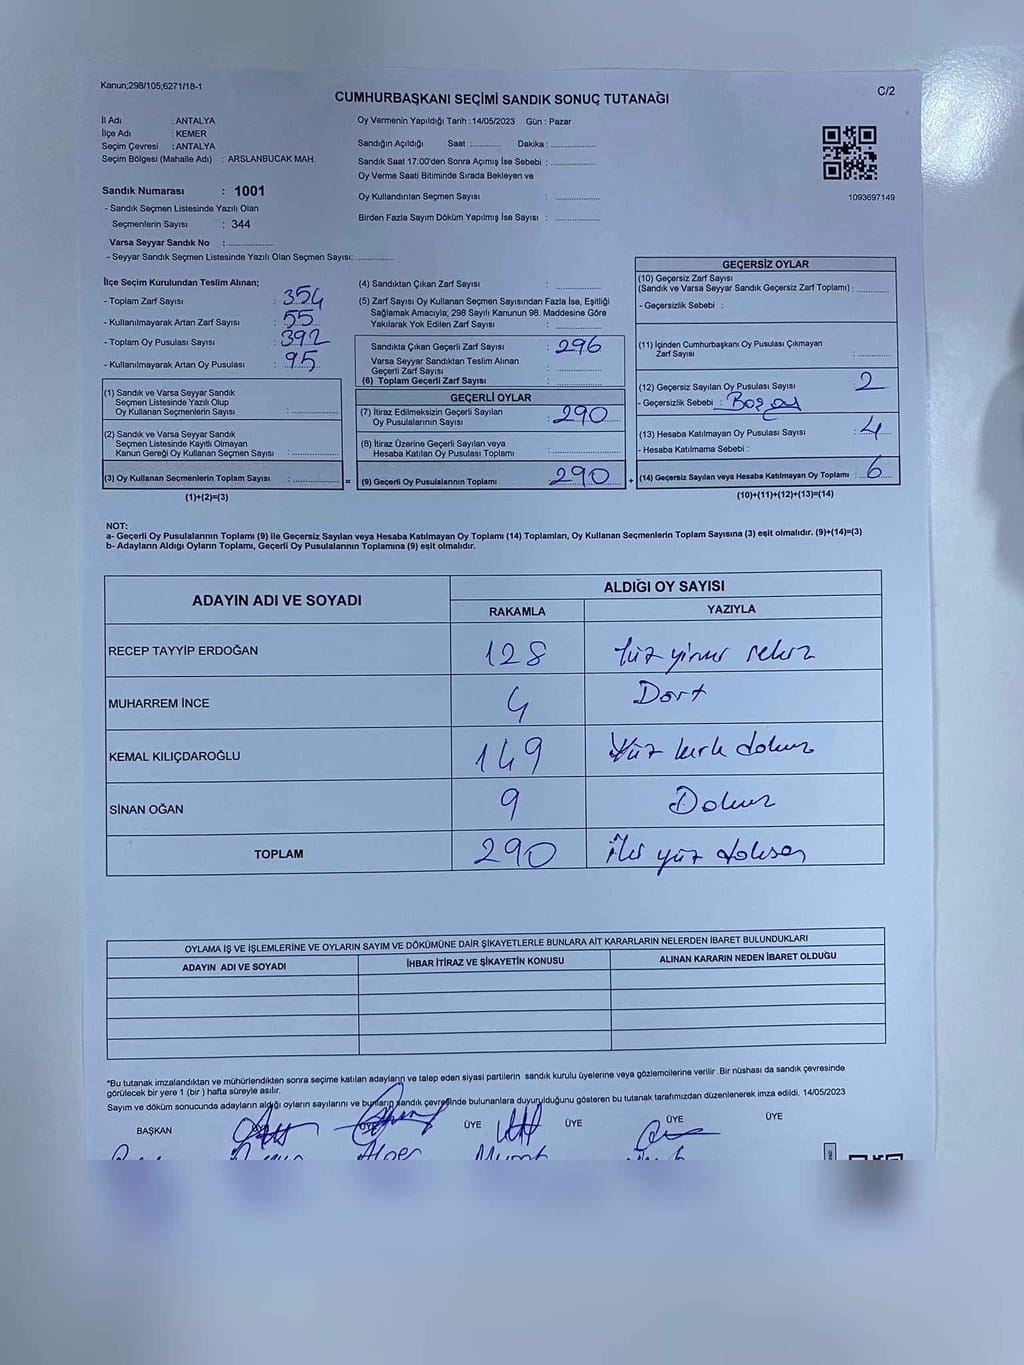 Kanun;298/105;6271/18-1
C/2
CUMHURBAŞKANI SEÇİMİ SANDIK SONUÇ TUTANAĞI
İl Adı : ANTALYA
İlçe Adı : KEMER
Seçim Çevresi : ANTALYA
Seçim Bölgesi (Mahalle Adı) : ARSLANBUCAK MAH.
Sandık Numarası : 1001
- Sandık Seçmen Listesinde Yazılı Olan
Seçmenlerin Sayısı : 344
Varsa Seyyar Sandık No : ..............
- Seyyar Sandık Seçmen Listesinde Yazılı Olan Seçmen Sayısı: ............
Oy Vermenin Yapıldığı Tarih :14/05/2023 Gün : Pazar
Sandığın Açıldığı Saat :.......... Dakika : ..............
Sandık Saat 17:00'den Sonra Açımış İse Sebebi : ..............
Oy Verme Saati Bitiminde Sırada Bekleyen ve
Oy Kullandırılan Seçmen Sayısı : ..............
Birden Fazla Sayım Döküm Yapılmış İse Sayısı : ..............
1093697149
İlçe Seçim Kurulundan Teslim Alınan;
- Toplam Zarf Sayısı : 354
- Kullanılmayarak Artan Zarf Sayısı : 55
- Toplam Oy Pusulası Sayısı : 392
- Kullanılmayarak Artan Oy Pusulası : 95
(1) Sandık ve Varsa Seyyar Sandık
Seçmen Listesinde Yazılı Olup
Oy Kullanan Seçmenlerin Sayısı : ..............
(2) Sandık ve Varsa Seyyar Sandık
Seçmen Listesinde Kayıtlı Olmayan
Kanun Gereği Oy Kullanan Seçmen Sayısı : ..............
(3) Oy Kullanan Seçmenlerin Toplam Sayısı : .............. =
(1)+(2)=(3)
(4) Sandıktan Çıkan Zarf Sayısı : ..............
(5) Zarf Sayısı Oy Kullanan Seçmen Sayısından Fazla İse, Eşitliği
Sağlamak Amacıyla; 298 Sayılı Kanunun 98. Maddesine Göre
Yakılarak Yok Edilen Zarf Sayısı : ..............
Sandıkta Çıkan Geçerli Zarf Sayısı : 296
Varsa Seyyar Sandıktan Teslim Alınan
Geçerli Zarf Sayısı : ..............
(6) Toplam Geçerli Zarf Sayısı : ..............
GEÇERLİ OYLAR
(7) İtiraz Edilmeksizin Geçerli Sayılan
Oy Pusulalarının Sayısı : 290
(8) İtiraz Üzerine Geçerli Sayılan veya
Hesaba Katılan Oy Pusulası Toplamı : ..............
(9) Geçerli Oy Pusulalarının Toplamı 290 +
GEÇERSİZ OYLAR
(10) Geçersiz Zarf Sayısı
(Sandık ve Varsa Seyyar Sandık Geçersiz Zarf Toplamı) : ..........
- Geçersizlik Sebebi :
(11) İçinden Cumhurbaşkanı Oy Pusulası Çıkmayan
Zarf Sayısı : ..........
(12) Geçersiz Sayılan Oy Pusulası Sayısı : 2
- Geçersizlik Sebebi :
(13) Hesaba Katılmayan Oy Pusulası Sayısı : 4
- Hesaba Katılmama Sebebi :
(14) Geçersiz Sayılan veya Hesaba Katılmayan Oy Toplamı : 6
(10)+(11)+(12)+(13)=(14)
NOT:
a- Geçerli Oy Pusulalarının Toplamı (9) ile Geçersiz Sayılan veya Hesaba Katılmayan Oy Toplamı (14) Toplamları, Oy Kullanan Seçmenlerin Toplam Sayısına (3) eşit olmalıdır. (9)+(14)=(3)
b- Adayların Aldığı Oyların Toplamı, Geçerli Oy Pusulalarının Toplamına (9) eşit olmalıdır.
ADAYIN ADI VE SOYADI
ALDIĞI OY SAYISI
RAKAMLA YAZIYLA
RECEP TAYYİP ERDOĞAN 128 Yüz yirmi sekiz
MUHARREM İNCE 4 Dört
KEMAL KILIÇDAROĞLU 149 Yüz kırk dokuz
SİNAN OĞAN 9 Dokuz
TOPLAM 290 iki yüz doksan
OYLAMA İŞ VE İŞLEMLERİNE VE OYLARIN SAYIM VE DÖKÜMÜNE DAİR ŞİKAYETLERLE BUNLARA AİT KARARLARIN NELERDEN İBARET BULUNDUKLARI
ADAYIN ADI VE SOYADI İHBAR İTİRAZ VE ŞİKAYETİN KONUSU ALINAN KARARIN NEDEN İBARET OLDUĞU
*Bu tutanak imzalandıktan ve mühürlendikten sonra seçime katılan adayların ve talep eden siyasi partilerin sandık kurulu üyelerine veya gözlemcilerine verilir .Bir nüshası da sandık çevresinde
görülecek bir yere 1 (bir ) hafta süreyle asılır.
Sayım ve döküm sonucunda adayların aldığı oyların sayılarını ve bunların sandık çevresinde bulunanlara duyurulduğunu gösteren bu tutanak tarafımızdan düzenlenerek imza edildi. 14/05/2023
BAŞKAN ÜYE ÜYE ÜYE ÜYE ÜYE